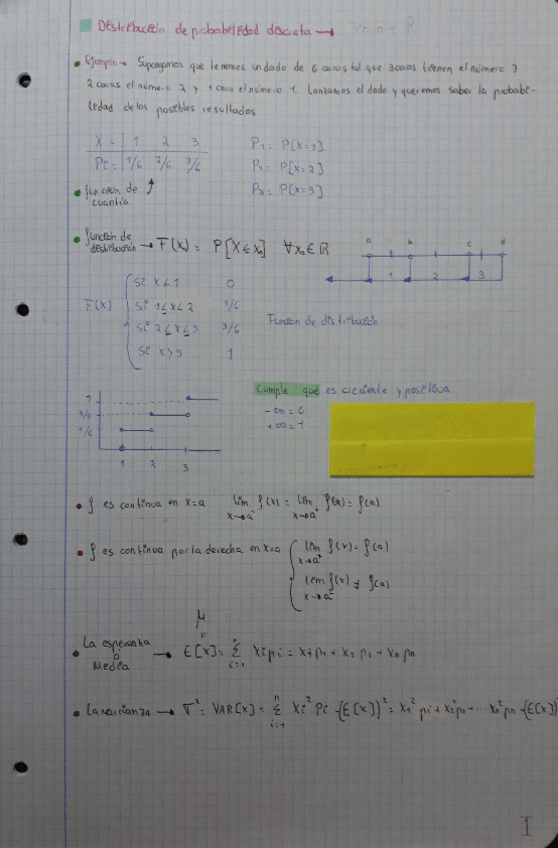 Distribución de probabilidad discreta →
• Ejemplo → Supongamos que tenemos un dado de 6 caras tal que 3 caras tienen el número 3
2 caras el número 2 y 1 cara el número 1. Lanzamos el dado y queremos saber la probabi-
lidad de los posibles resultados
X = | 1 | 2 | 3
Pi = | 1/6 | 2/6 | 3/6
P1 = P[X=1]
P2 = P[X=2]
P3 = P[X=3]
• función de ↑
cuantía
• función de
distribución → F(x) = P[X ≤ x0] ∀x0 ∈ ℝ
a b c d
1 2 3
F(x) { si x<1 0
si 1≤x<2 1/6
si 2≤x≤3 3/6
si x>3 1
Función de distribución
Cumple que es creciente y positiva
-∞ = 0
+∞ = 1
1
3/6
1/6
1 2 3
• f es continua en x=a lim x→a⁻ f(x) = lim x→a⁺ f(x) = f(a)
• f es continua por la derecha en x=a { lim x→a⁺ f(x) = f(a)
lim x→a⁻ f(x) ≠ f(a)
μ
"
• La esperanza
o
Media → E[X] = Σ i=1 xi pi = x1 p1 + x2 p2 + xn pn
• La varianza → σ² = VAR[X] = Σ n i=1 xi² Pi -(E[X])² = x1² pi + x2² p2 + ... xn² pn -(E[X])
I